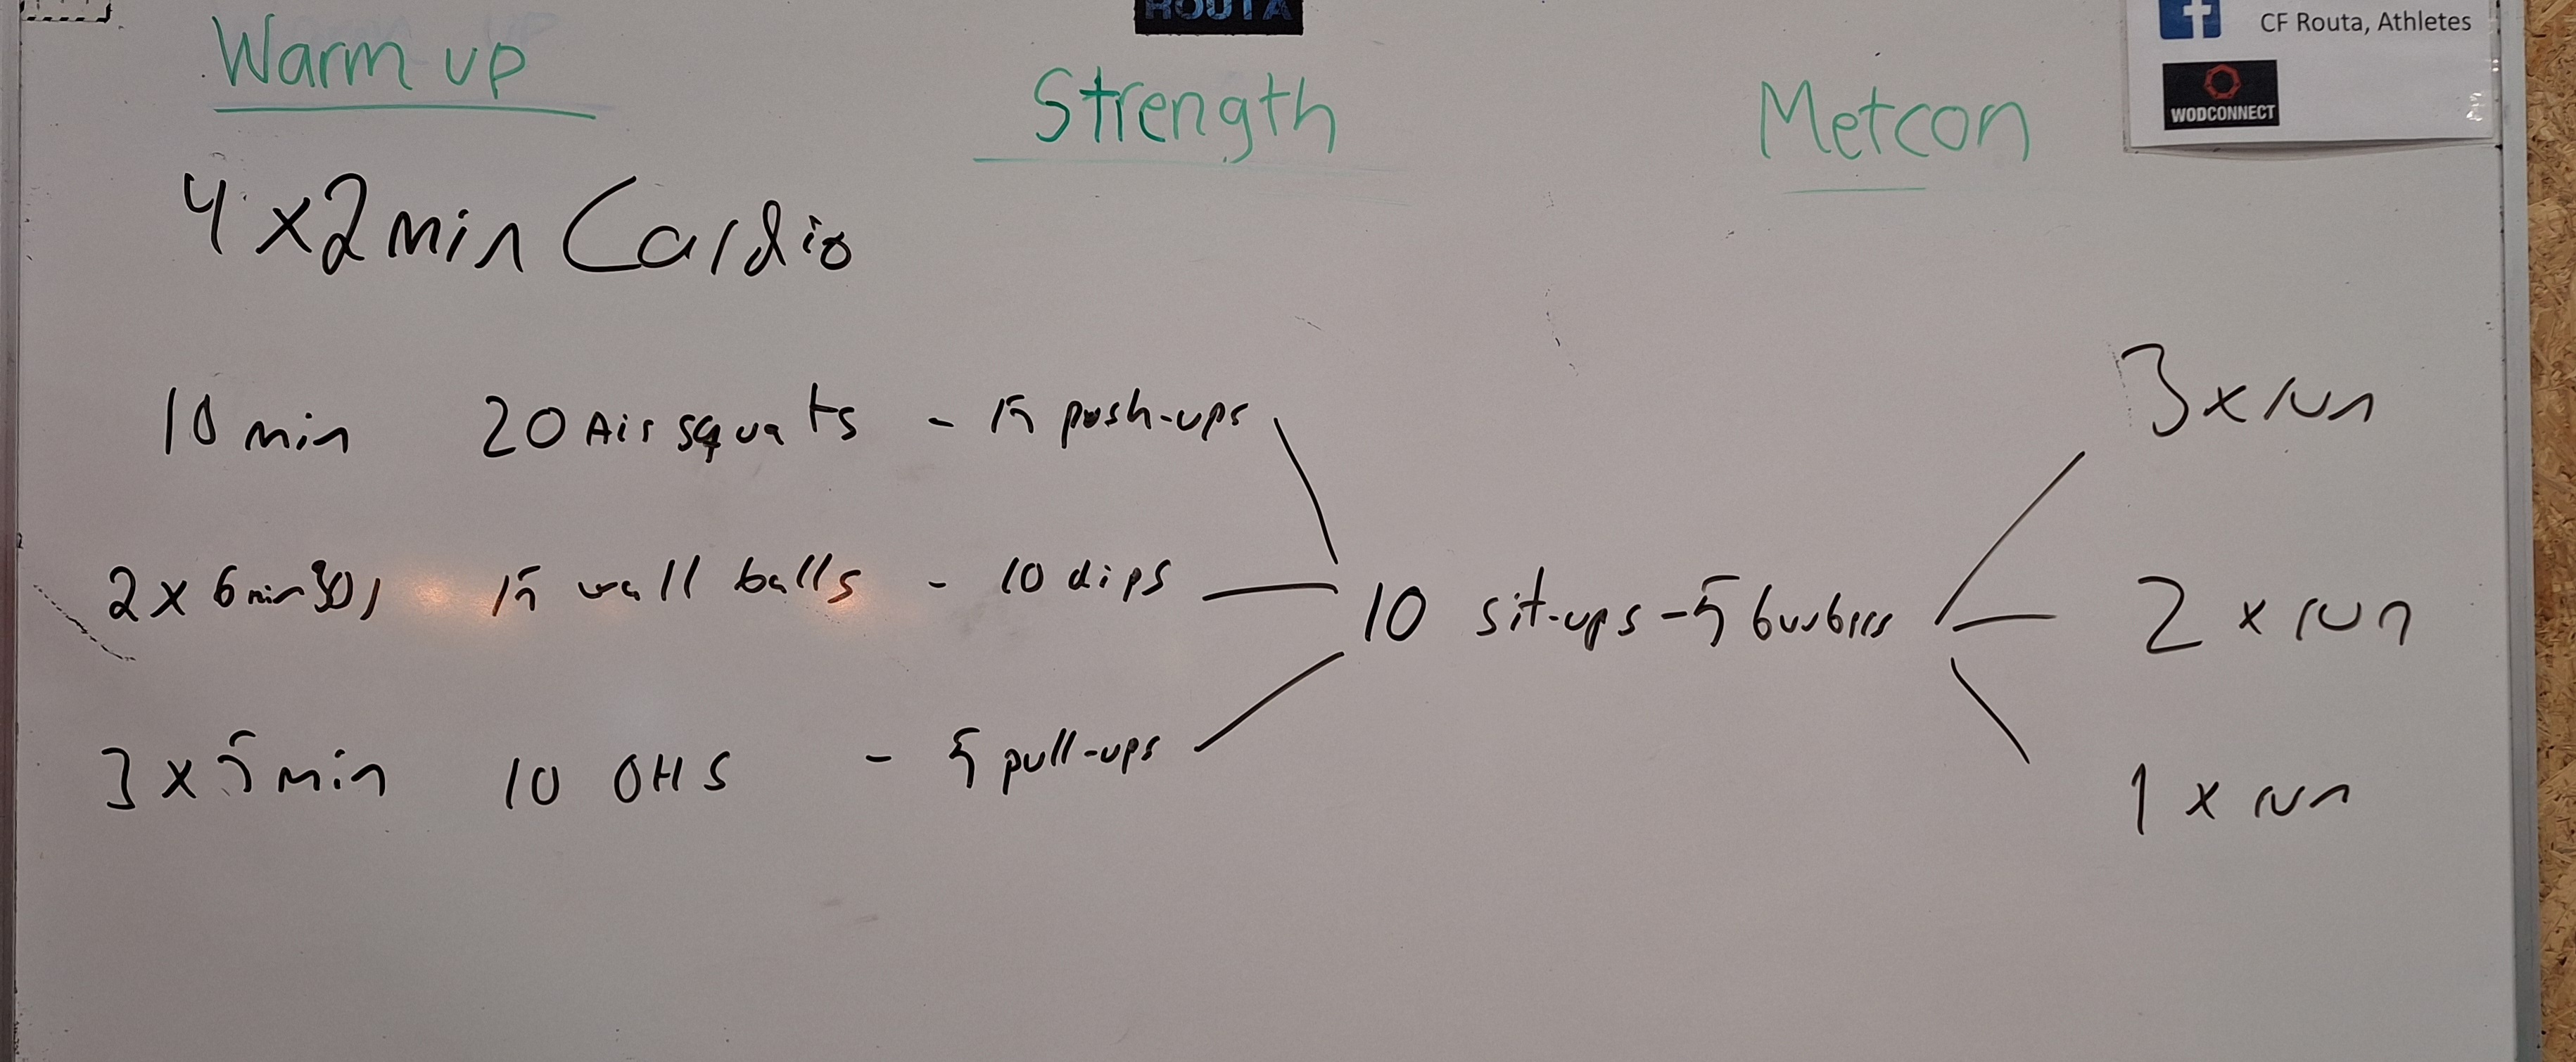 ROUTA
CF Routa, Athletes
WODCONNECT
Warm up
Strength
Metcon
4 x 2 min Cardio
10 min 20 Air squats - 15 push-ups
3 x run
2 x 6 min 30s 15 wall balls - 10 dips
10 sit-ups - 5 burbees
2 x run
3 x 5 min 10 OHS - 5 pull-ups
1 x run